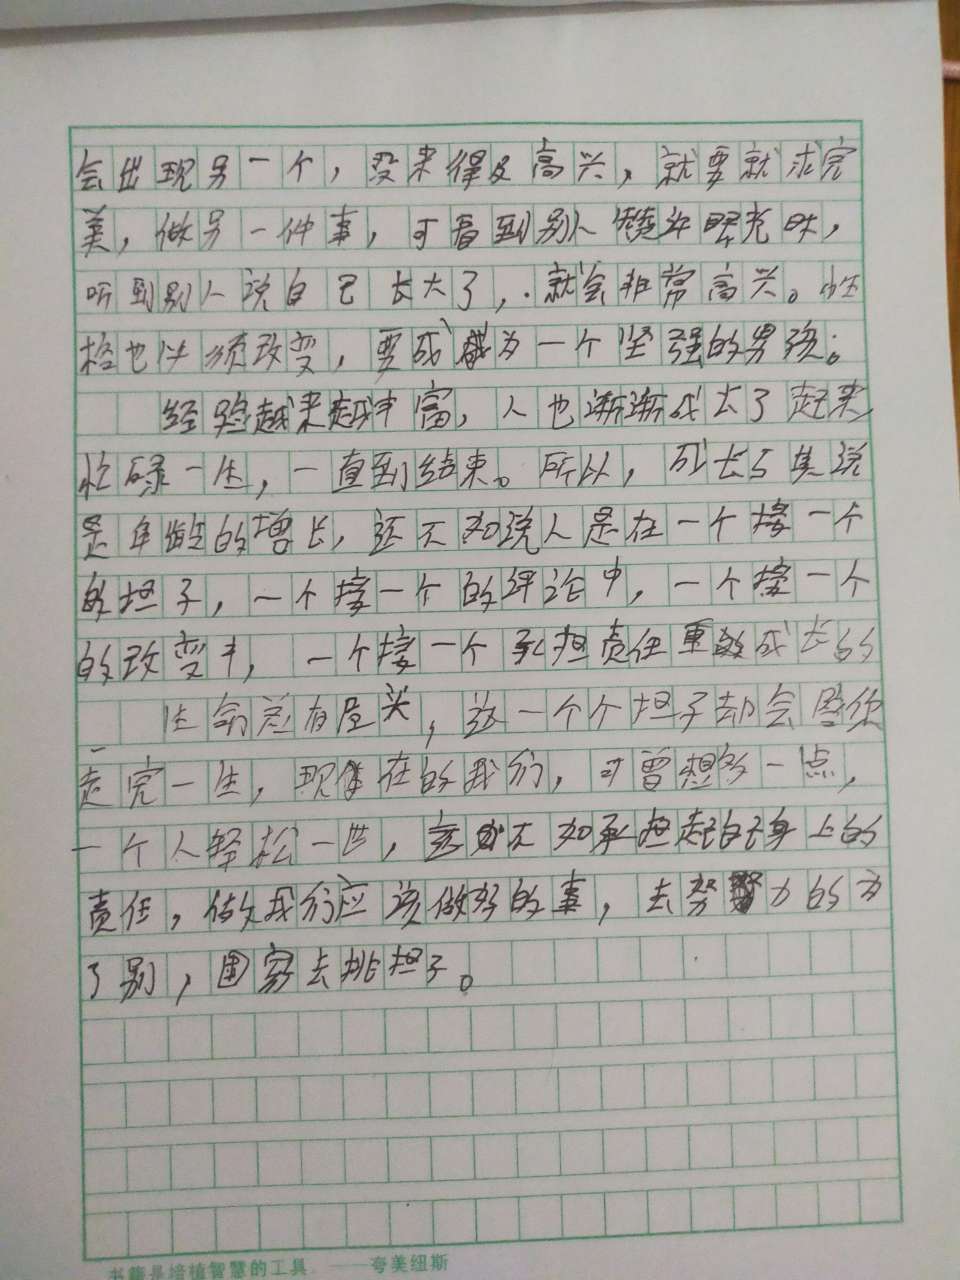 会出现另一个，没来得及高兴，就要就求完
美，做另一件事，可看到别人赞许眼光时，
听到别人说自己长大了，就会非常高兴。性
格也必须改变，要成为一个坚强的男孩。
经验越来越丰富，人也渐渐成长了起来
忙碌一生，一直到结束。所以，成长与其说
是年龄的增长，还不如说人是在一个接一个
的担子，一个接一个的评论中，一个接一个
的改变中，一个接一个承担责任重的成长的
生命总有尽头，这一个个担子却会陪你
走完一生，现在的我们，可曾想多一点，
一个人轻松一世，还不如承担起自己身上的
责任，做我们应该做多的事，去努力的为
了别，国家去挑担子。
书籍是培植智慧的工具 ——夸美纽斯